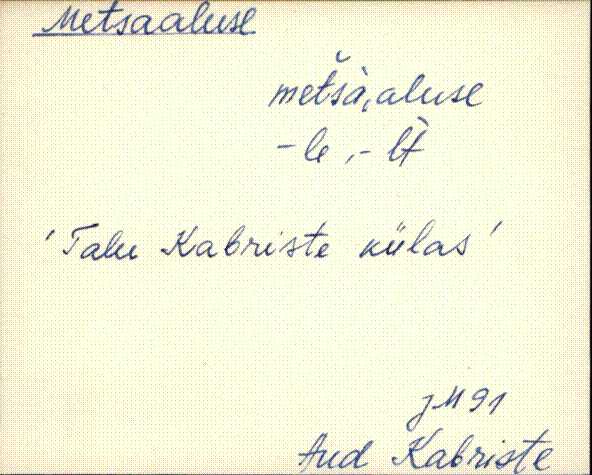 Metsaaluse
metšà,aluse
-le, -lt̀
'Talu Kabriste külas'
JM 91
Aud Kabriste